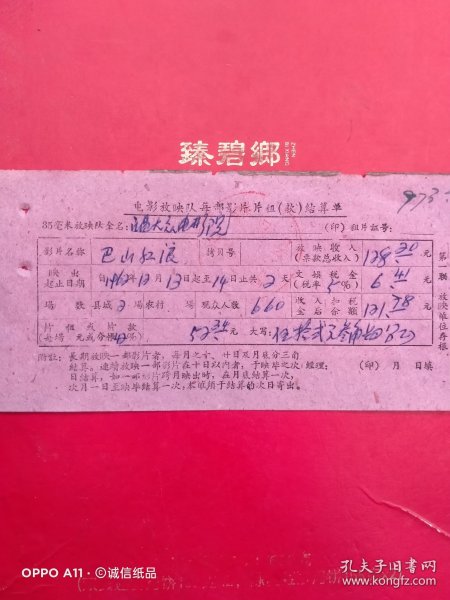 臻碧鄉
电影放映队每部影片片租(款)结算单
35毫米放映队全名：
(印) 租片証号：
影片名称 巴山红浪 拷贝号 放映收入(票款总收入) 128.20元
映出起止日期 自 12月13日起至14日止共2天 文娱税金(税率5%) 6.41元
场数 县城2场农村 场 观众人数 660 收入扣税金后余额 121.78元
片租或片款 52 元 大写：伍拾贰元
附註：长期放映一部影片者，每月之十、廿日及月底分三旬
结算。连续放映一部影片在十日以内者，于映毕之次
日结算，如一部影片跨月映出时，在月底结算一次，
次月一日至映毕结算一次，本底须于结算的次日寄出。
(印) 月 日填
第一联 放映单位存根
OPPO A11 · ©诚信纸品
孔夫子旧书网
www.kongfz.com